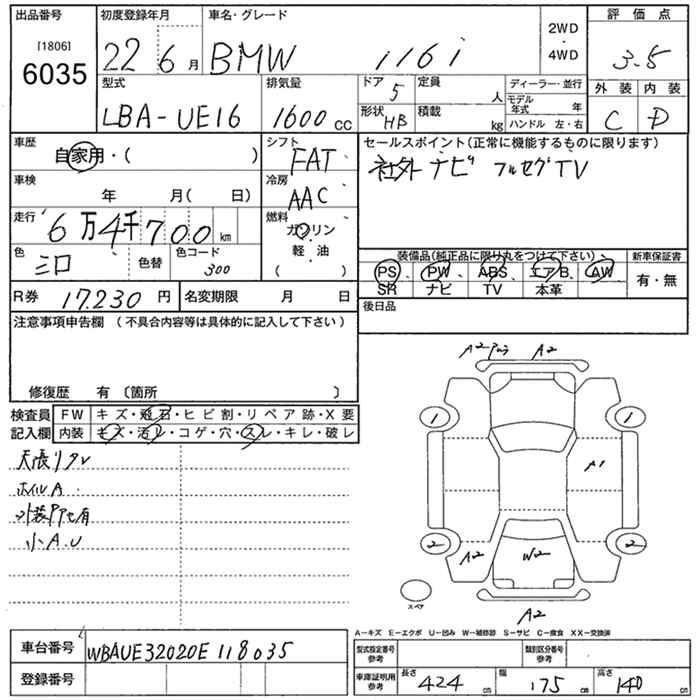 出品番号 初度登録年月 車名・グレード 評価点
[1806] 6035 22 6月 BMW 116i 2WD・4WD 3.5
型式 排気量 ドア 5 定員 人 ディーラー・並行 外装 内装
LBA-UE16 1600cc 形状 HB 積載 kg モデル年式 年 ハンドル 左・右 C D
車歴 シフト セールスポイント(正常に機能するものに限ります)
自家用・( ) FAT 社外ナビ フルセグTV
車検 冷房
年 月( 日) AAC
走行 燃料
6万4千700km ガソリン
色 色替 色コード 軽・油 装備品(純正品に限り丸をつけて下さい) 新車保証書
300 ( ) PS PW ABS エアB AW 有・無
SR ナビ TV 本革
R券 17,230円 名変期限 月 日 後日品
注意事項申告欄 (不具合内容等は具体的に記入して下さい)
修復歴 有 〔箇所 〕
A2 A2
検査員 FW キズ・飛石・ヒビ割・リペア跡・X要
記入欄 内装 キズ・汚レ・コゲ・穴・スレ・キレ・破レ
1 1
A1
天張リタレ
ホイルA
外装 有
小A.U
2 A2 W2 2
スペア
A2
A-キズ E-エクボ U-凹み W-補修跡 S-サビ C-腐食 XX-交換済
車台番号 WBAUE32020E118035 型式指定番号 参考 類別区分番号 参考
登録番号 車庫証明用 参考 長さ 424cm 幅 175cm 高さ 140cm